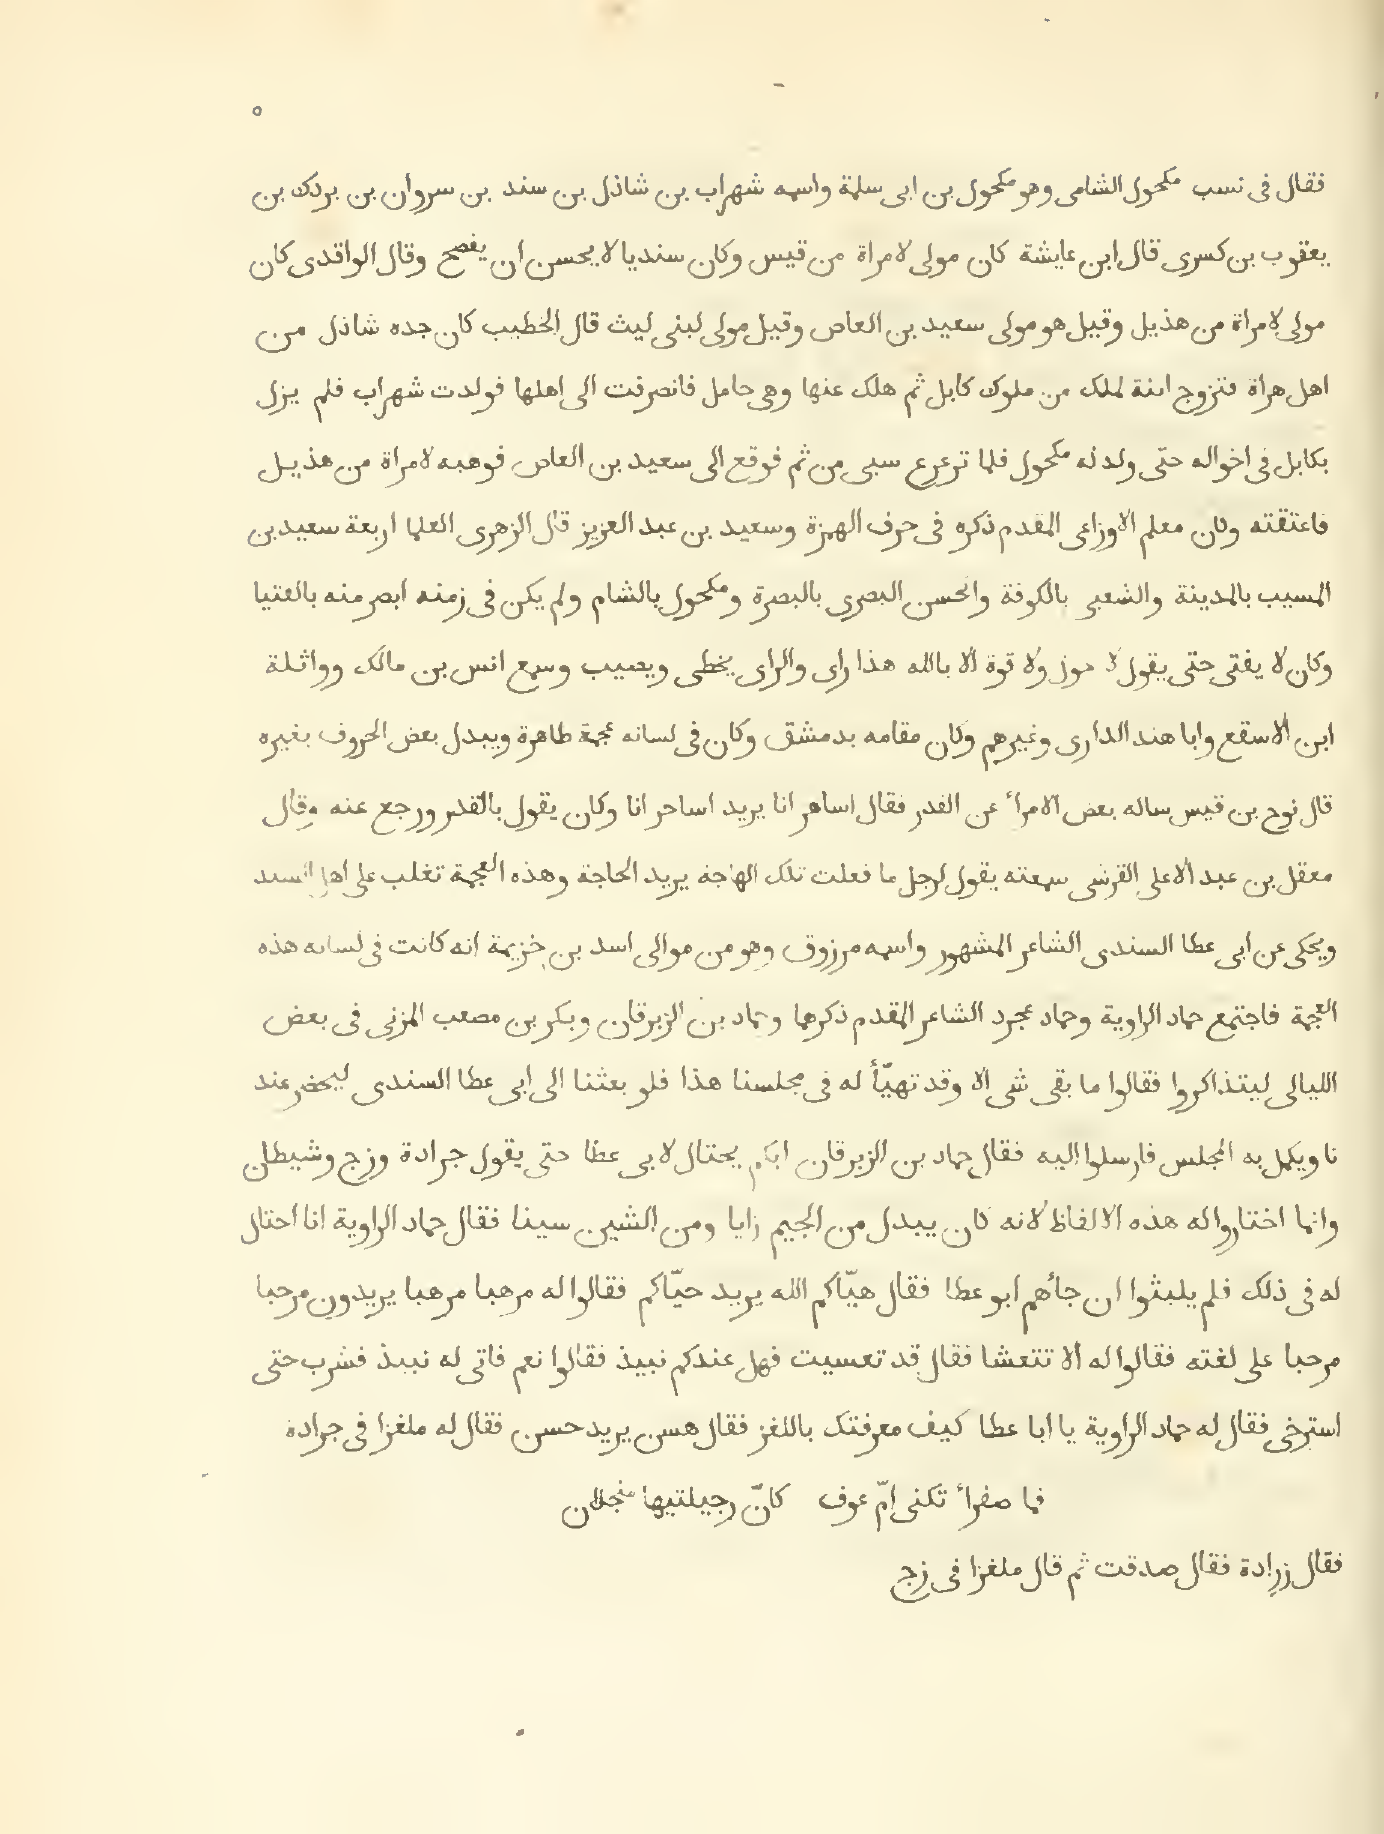 ٥
فقال فى نسب مكحول الشامى وهو مكحول بن ابى سلمة واسمه شهراب بن شاذل بن سند بن سروان بن بردك بن
يعقوب بن كسرى قال ابن عايشة كان مولى لامراة من قيس وكان سنديا لا يحسن ان يفصح وقال الواقدى كان
مولى لامراة من هذيل وقيل هو مولى سعيد بن العاص وقيل مولى لبنى ليث قال الخطيب كان جده شاذل من
اهل هراة فتزوج ابنة لملك من ملوك كابل ثم هلك عنها وهى حامل فانصرفت الى اهلها فولدت شهراب فلم يزل
بكابل فى اخواله حتّى ولد له مكحول فلما ترعرع سبى من ثم فوقع الى سعيد بن العاص فوهبه لامراة من هذيل
فاعتقته وكان معلم الاوزاعى المقدم ذكره فى حرف الهمزة وسعيد بن عبد العزيز قال الزهرى العلما اربعة سعيد بن
المسيب بالمدينة والشعبى بالكوفة والحسن البصرى بالبصرة ومكحول بالشام ولم يكن فى زمنه ابصر منه بالفتيا
وكان لا يفتى حتى يقول لا حول ولا قوة الا بالله هذا راى والراى يخطى ويصيب وسمع انس بن مالك وواثلة
ابن الاسقع وابا هند الدارى وغيرهم وكان مقامه بدمشق وكان فى لسانه عجمة ظاهرة ويبدل بعض الحروف بغيره
قال نوح بن قيس ساله بعض الامرآ عن القدر فقال اساهر انا يريد اساحر انا وكان يقول بالقدر ورجع عنه وقال
معقل بن عبد الاعلى القرشى سمعته يقول لرجل ما فعلت تلك الهاجة يريد الحاجة وهذه العجمة تغلب على اهل السند
ويحكى عن ابى عطا السندى الشاعر المشهور واسمه مرزوق وهو من موالى اسد بن خزيمة انه كانت فى لسانه هذه
العجمة فاجتمع حماد الراوية وحماد عجرد الشاعر المقدم ذكرهما وحماد بن الزبرقان وبكر بن مصعب المزنى فى بعض
الليالى ليتذاكروا فقالوا ما بقى شى الا وقد تهيّأ له فى مجلسنا هذا فلو بعثنا الى ابى عطا السندى ليحضر عند
نا ويكمل به المجلس فارسلوا اليه فقال حماد بن الزبرقان ايكم يحتال لابى عطا حتى يقول جرادة وزج وشيطان
وانما اختاروا له هذه الالفاظ لانه كان يبدل من الجيم زايا ومن الشين سينا فقال حماد الراوية انا احتال
له فى ذلك فلم يلبثوا ان جأهم ابو عطا فقال هيّاكم الله يريد حيّاكم فقالوا له مرهبا مرهبا يريدون مرحبا
مرحبا على لغته فقالوا له الا تتعشا فقال قد تعسيت فهل عندكم نبيذ فقالوا نعم فاتى له نبيذ فشرب حتى
استرخى فقال له حماد الراوية يا ابا عطا كيف معرفتك باللغز فقال هسن يريد حسن فقال له ملغزا فى جرادة
فما صفرأ تكنى امّ عوف كانّ رجيلتيها منجلان
فقال زرادة فقال صدقت ثم قال ملغزا فى زج